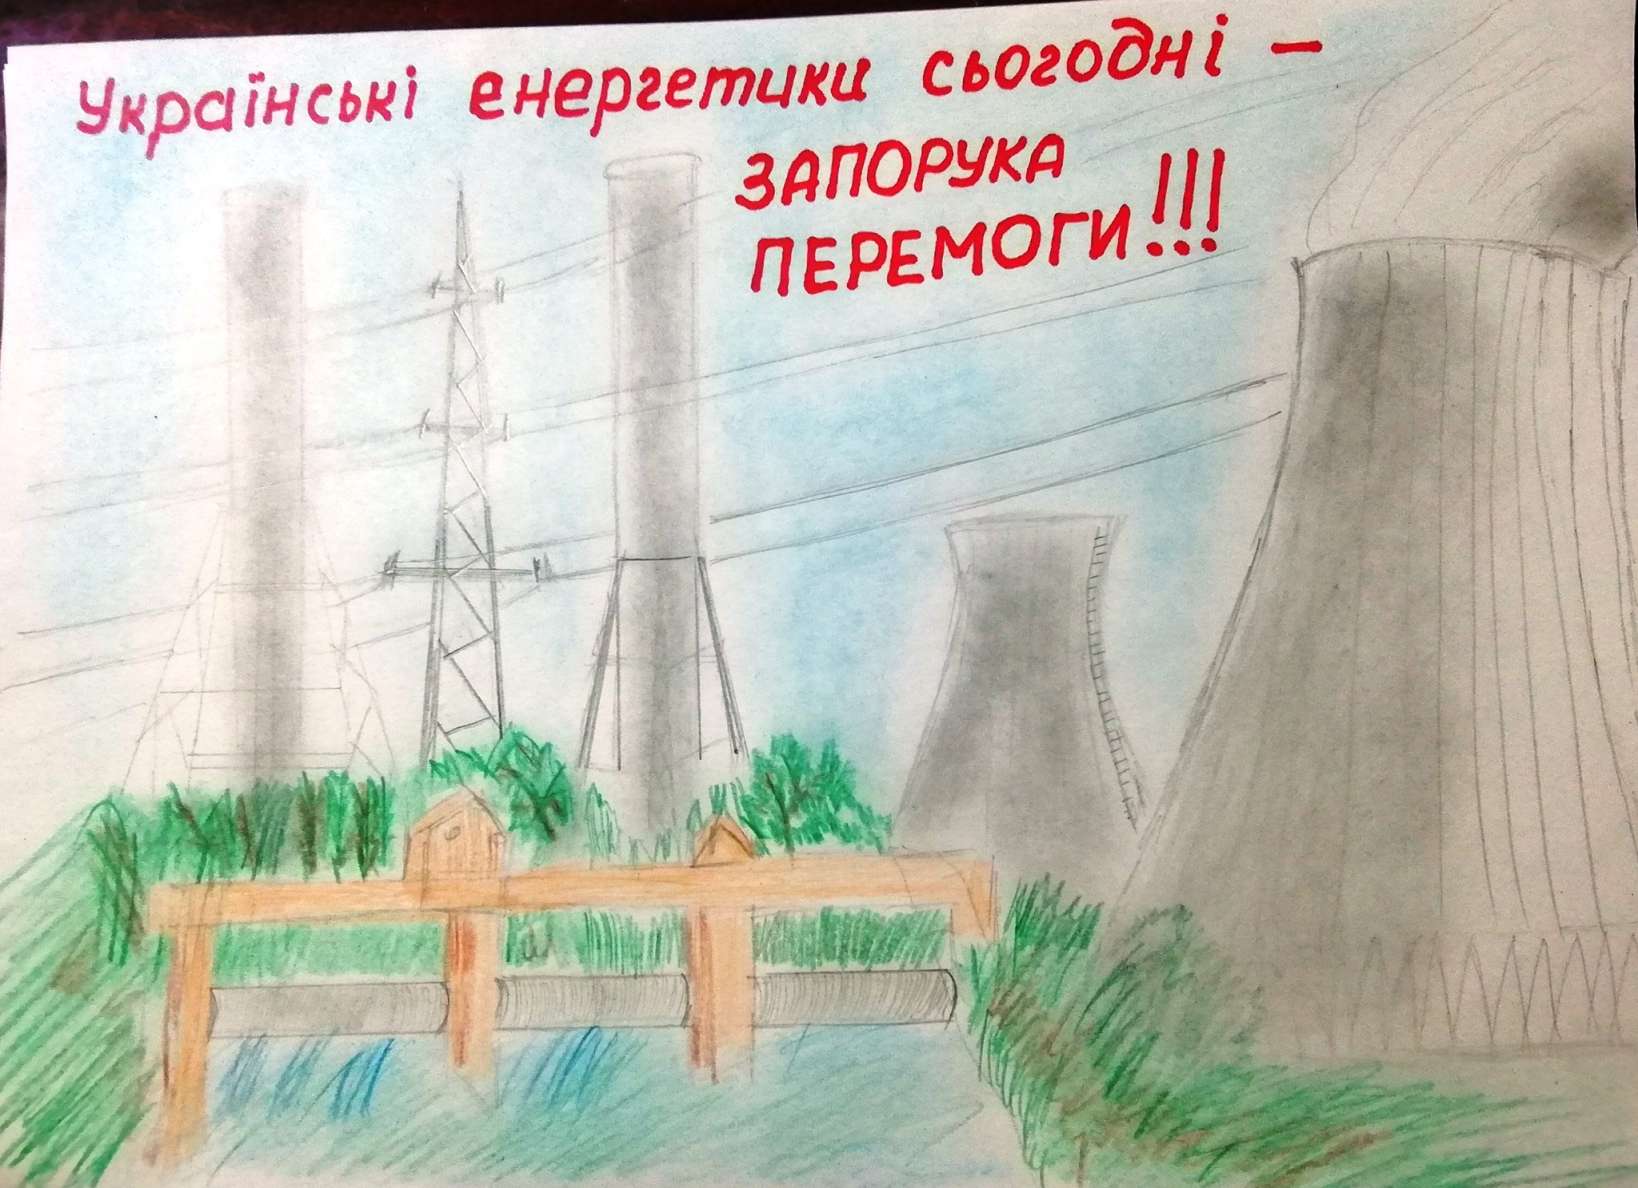 Українські енергетики сьогодні –
ЗАПОРУКА
ПЕРЕМОГИ!!!